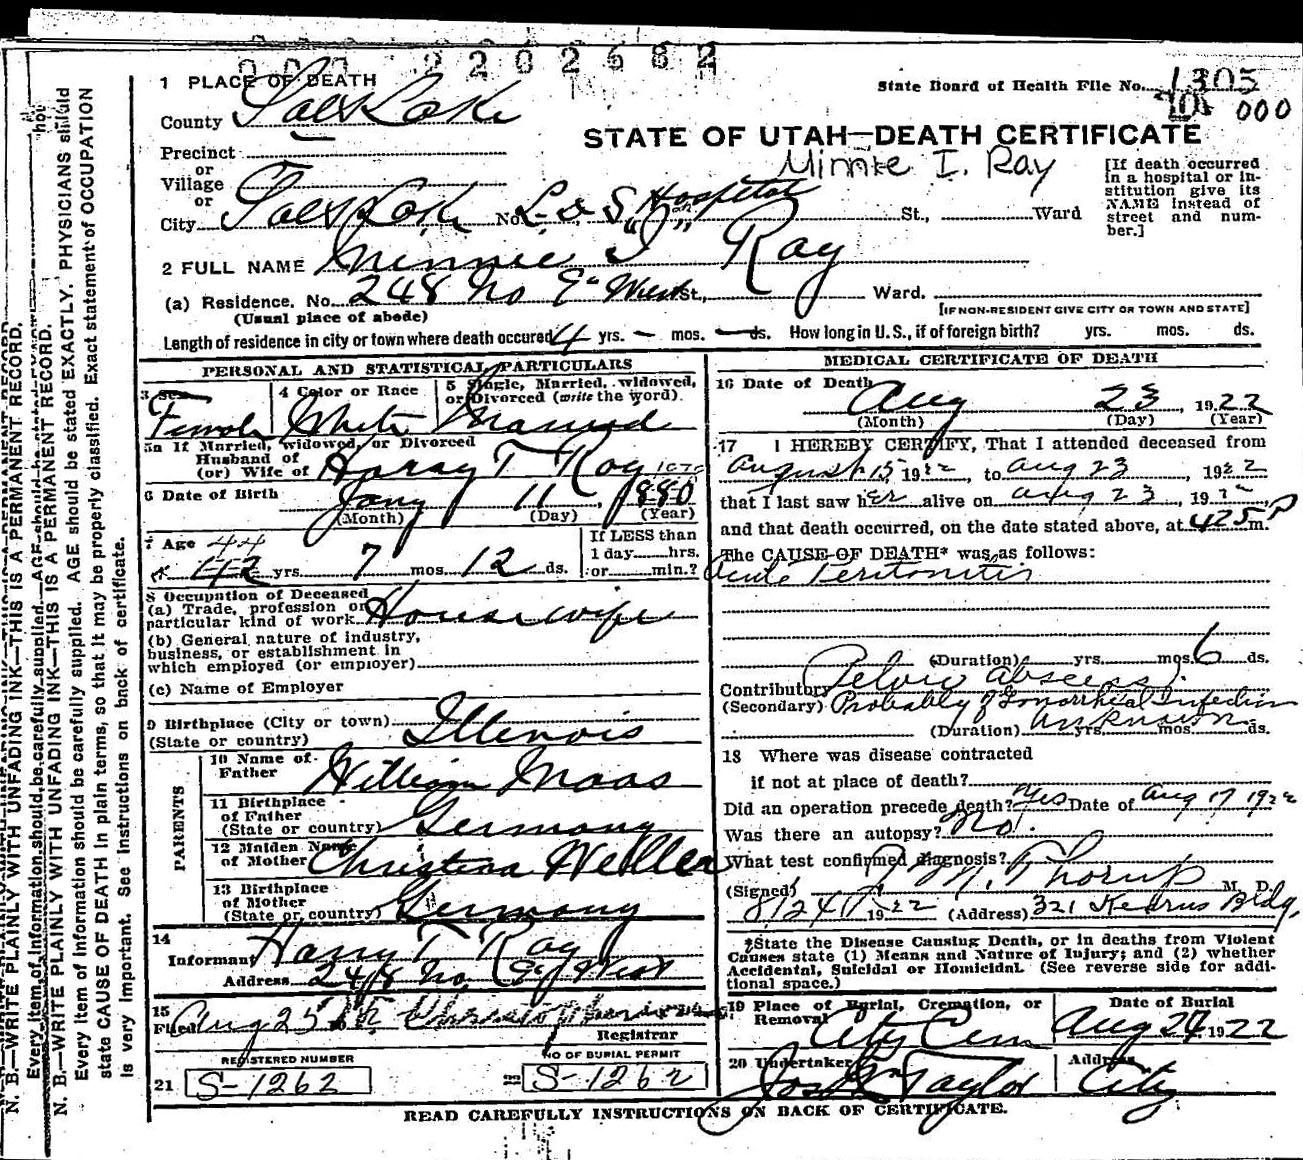 007 2202682
1 PLACE OF DEATH
State Board of Health File No. 1305
000
County Salt Lake
STATE OF UTAH—DEATH CERTIFICATE
Precinct
Minnie I. Ray
or
Village
or
City Salt Lake No. L. D. S. Hospital St., Ward
[If death occurred in a hospital or institution give its NAME instead of street and number.]
2 FULL NAME Minnie I Ray
(a) Residence. No. 248 No 9" West St., Ward.
(Usual place of abode)
[IF NON-RESIDENT GIVE CITY OR TOWN AND STATE]
Length of residence in city or town where death occured 4 yrs. — mos. — ds. How long in U.S., if of foreign birth? yrs. mos. ds.
PERSONAL AND STATISTICAL PARTICULARS
3 Sex Female
4 Color or Race White
5 Single, Married, widowed, or Divorced (write the word). Married
5a If Married, widowed, or Divorced
Husband of
(or) Wife of Harry T Ray
6 Date of Birth Jany 11, 1880
(Month) (Day) (Year)
7 Age 44
42 yrs. 7 mos. 12 ds.
If LESS than
1 day hrs.
or min.?
8 Occupation of Deceased
(a) Trade, profession or
particular kind of work Housewife
(b) General nature of industry,
business, or establishment in
which employed (or employer)
(c) Name of Employer
9 Birthplace (City or town)
(State or country) Illinois
PARENTS
10 Name of Father William Maas
11 Birthplace of Father
(State or country) Germany
12 Maiden Name of Mother Christena
13 Birthplace of Mother
(State or country) Germany
14
Informant Harry T Ray
Address 248 No 9" West
15
Filed Aug 25
Registrar
REGISTERED NUMBER
NO OF BURIAL PERMIT
21 S-1262
22 S-1262
MEDICAL CERTIFICATE OF DEATH
16 Date of Death Aug 23, 1922
(Month) (Day) (Year)
17 I HEREBY CERTIFY, That I attended deceased from
August 15 1922, to Aug 23, 1922
that I last saw her alive on Aug 23, 19
and that death occurred, on the date stated above, at 425 P m.
The CAUSE OF DEATH* was as follows:
Acute Peritonitis
(Duration) yrs. mos. 6 ds.
Contributory Pelvic Abscess.
(Secondary) Probably of Gonorrheal Infection
(Duration) Unknown yrs. mos. ds.
18 Where was disease contracted
if not at place of death?
Did an operation precede death? Yes Date of Aug 17 1922
Was there an autopsy? No.
What test confirmed diagnosis?
(Signed) Thorup M. D.
8/24 1922 (Address) 321 Kearns Bldg.
*State the Disease Causing Death, or in deaths from Violent
Causes state (1) Means and Nature of Injury; and (2) whether
Accidental, Suicidal or Homicidal. (See reverse side for additional space.)
19 Place of Burial, Cremation, or Removal City Cem
Date of Burial Aug 24 1922
20 Undertaker Taylor
Address City
READ CAREFULLY INSTRUCTIONS ON BACK OF CERTIFICATE.
N. B.—WRITE PLAINLY WITH UNFADING INK—THIS IS A PERMANENT RECORD.
Every item of information should be carefully supplied. AGE should be stated EXACTLY. PHYSICIANS should
state CAUSE OF DEATH in plain terms, so that it may be properly classified. Exact statement of OCCUPATION
is very important. See instructions on back of certificate.